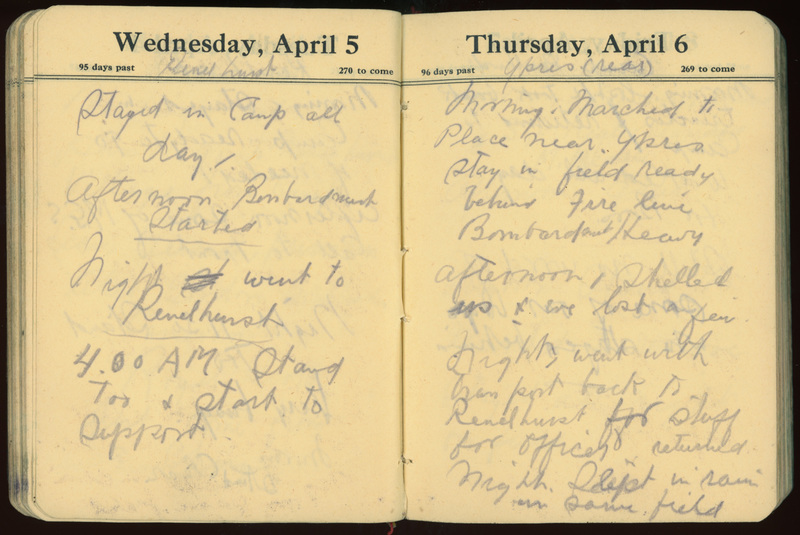 Wednesday, April 5
95 days past
270 to come
Staged in Camp all
day,
Afternoon Bombardment
Started
Night went to
Renelhurst
4.00 AM Stand
Too & start to
Support
Thursday, April 6
Ypres (rear)
96 days past
269 to come
Morning: Marched to
Place near Ypres
stay in field ready
behind Fire line
Bombardment Heavy
afternoon, Shelled
us & we lost a few
Night, went with
transport back to
Renelhurst for stuff
for officers returned
Night. Slept in rain
in same field